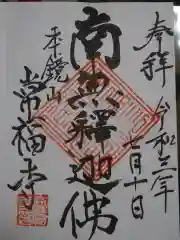 奉拝 令和三年
七月十日
南無釋迦佛
本鏡山
常福寺